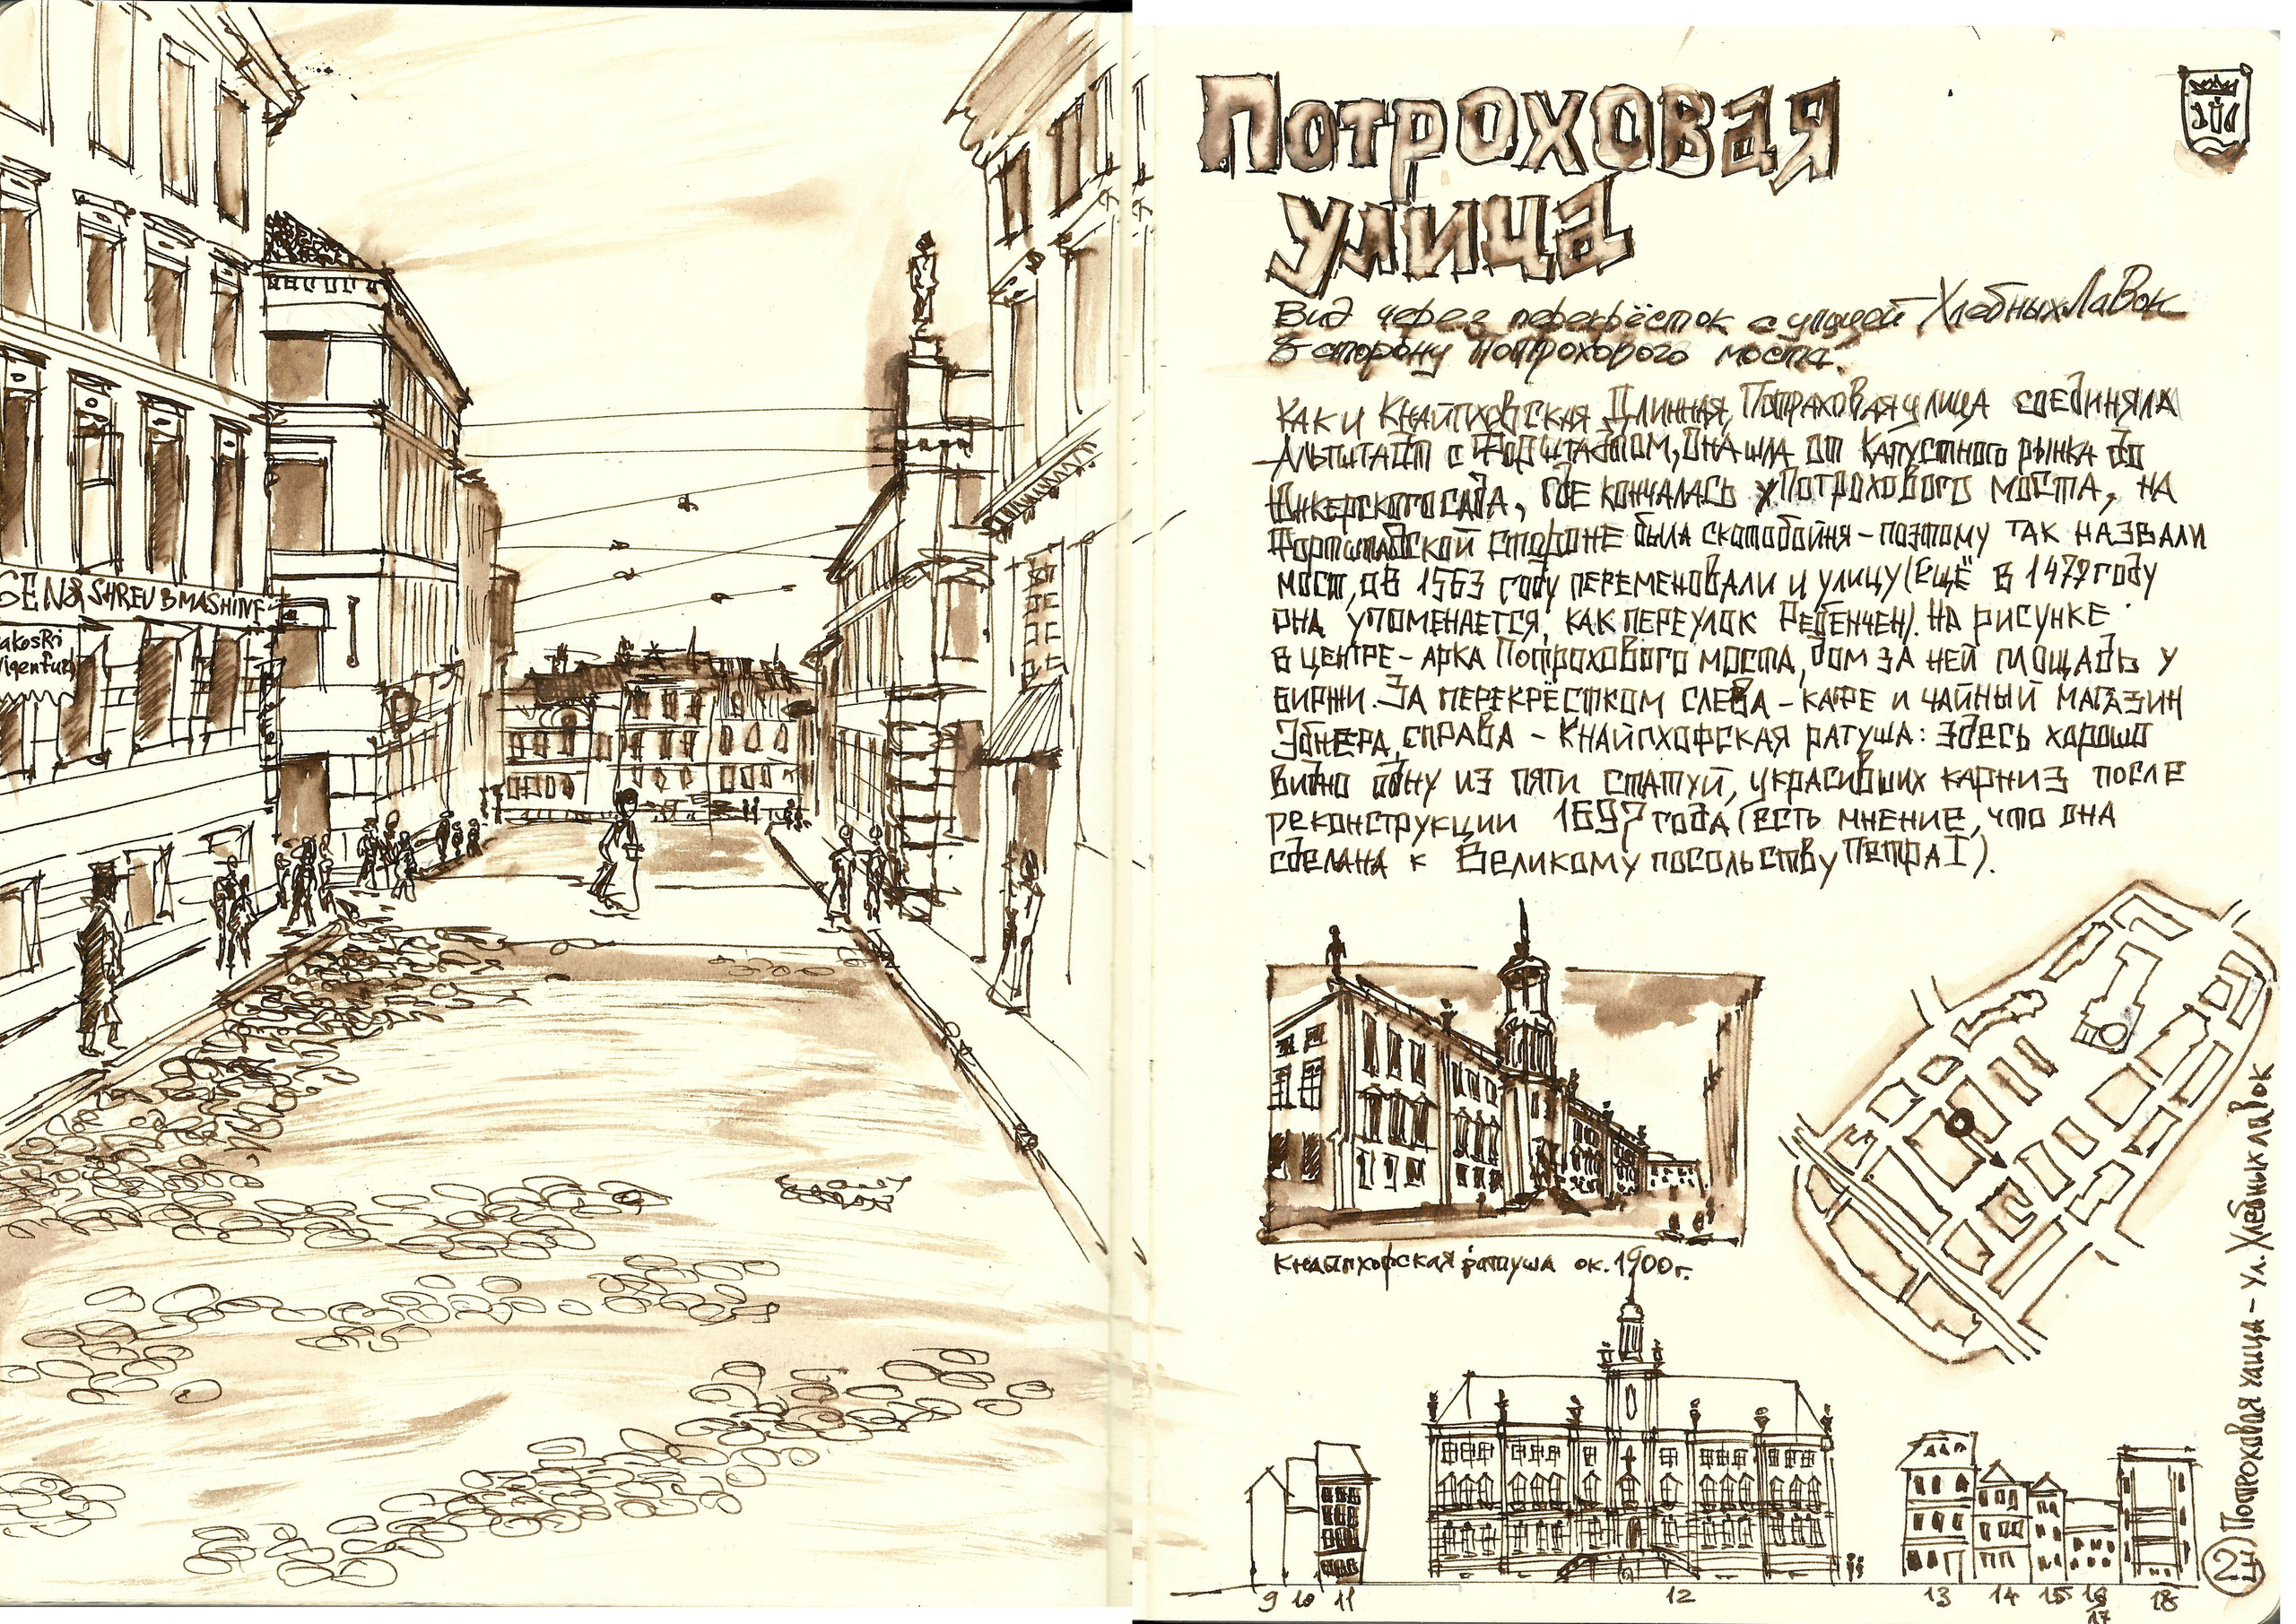 GEN & SHREVBMASHINE
akosRi
Потроховая
улица
Вид через перекрёсток с улицей Хлебных Лавок
в сторону Потрохового моста.
Как и Кнайпховская Длинная, Потроховая улица соединяла
Альтштадт с Форштадтом, она шла от Капустного рынка до
Юнкерского сада, где кончалась у Потрохового моста, на
Форштадской стороне была скотобойня - поэтому так назвали
мост, а в 1563 году переменовали и улицу (ещё в 1479 году
она упоминается, как переулок Ребенчен). На рисунке
в центре - арка Потрохового моста, дом за ней площадь у
биржи. За перекрёстком слева - кафе и чайный магазин
Эбнера, справа - Кнайпхофская ратуша: здесь хорошо
видно одну из пяти статуй, украсивших карниз после
реконструкции 1697 года (есть мнение, что она
сделана к Великому посольству Петра I).
Кнайпхофская ратуша ок. 1900г.
9 10 11 12 13 14 15 16 17 18
Потроховая улица - ул. Хлебных лавок
2